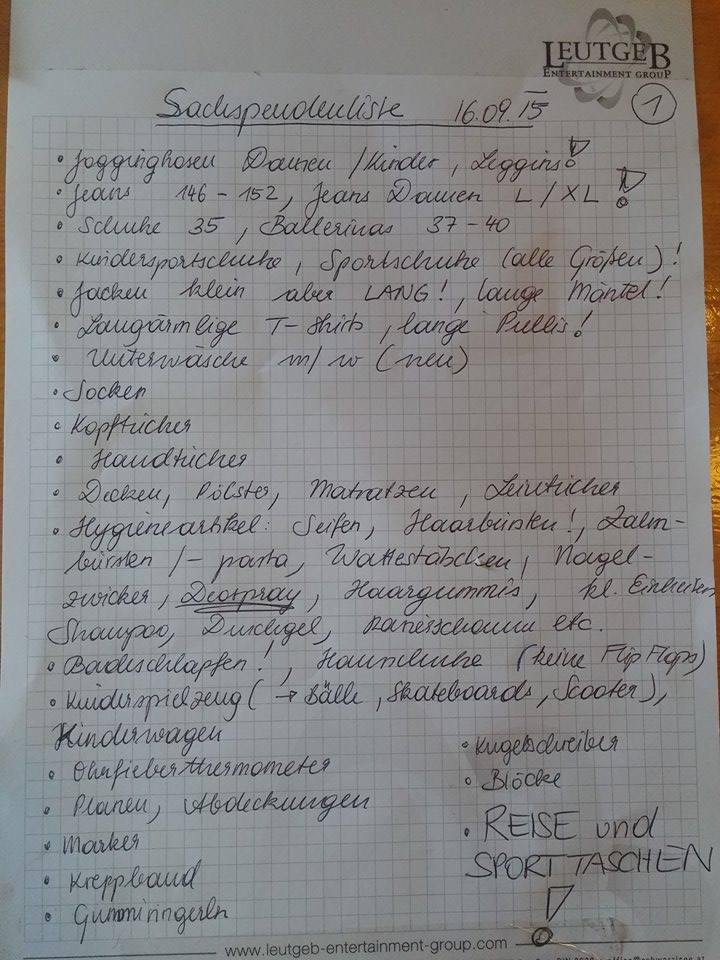 LEUTGEB
ENTERTAINMENT GROUP
Sachspendenliste 16.09.15 1
• Jogginghosen Damen / Kinder, Leggins!
• Jeans 146 - 152, Jeans Damen L / XL !
• Schuhe 35, Ballerinas 37 - 40
• Kindersportschuhe, Sportschuhe (alle Größen)!
• Jacken klein aber LANG!, lange Mäntel!
• Langärmlige T-Shirts, lange Pullis!
• Unterwäsche m/w (neu)
• Socken
• Kopftücher
• Handtücher
• Decken, Pölster, Matratzen, Leintücher
• Hygieneartikel: Seifen, Haarbürsten!, Zahn-
bürsten /- pasta, Wattestäbchen, Nagel-
zwicker, Deospray, Haargummis, kl. Einheiten
Shampoo, Duschgel, Rasierschaum etc.
• Badeschlapfen!, Hausschuhe (keine Flip Flops)
• Kinderspielzeug (→ Bälle, Skateboards, Scooter),
Kinderwagen
• Ohrfieberthermometer
• Planen, Abdeckungen
• Marker
• Kreppband
• Gummiringerln
• Kugelschreiber
• Blöcke
• REISE und
SPORTTASCHEN
!
www.leutgeb-entertainment-group.com